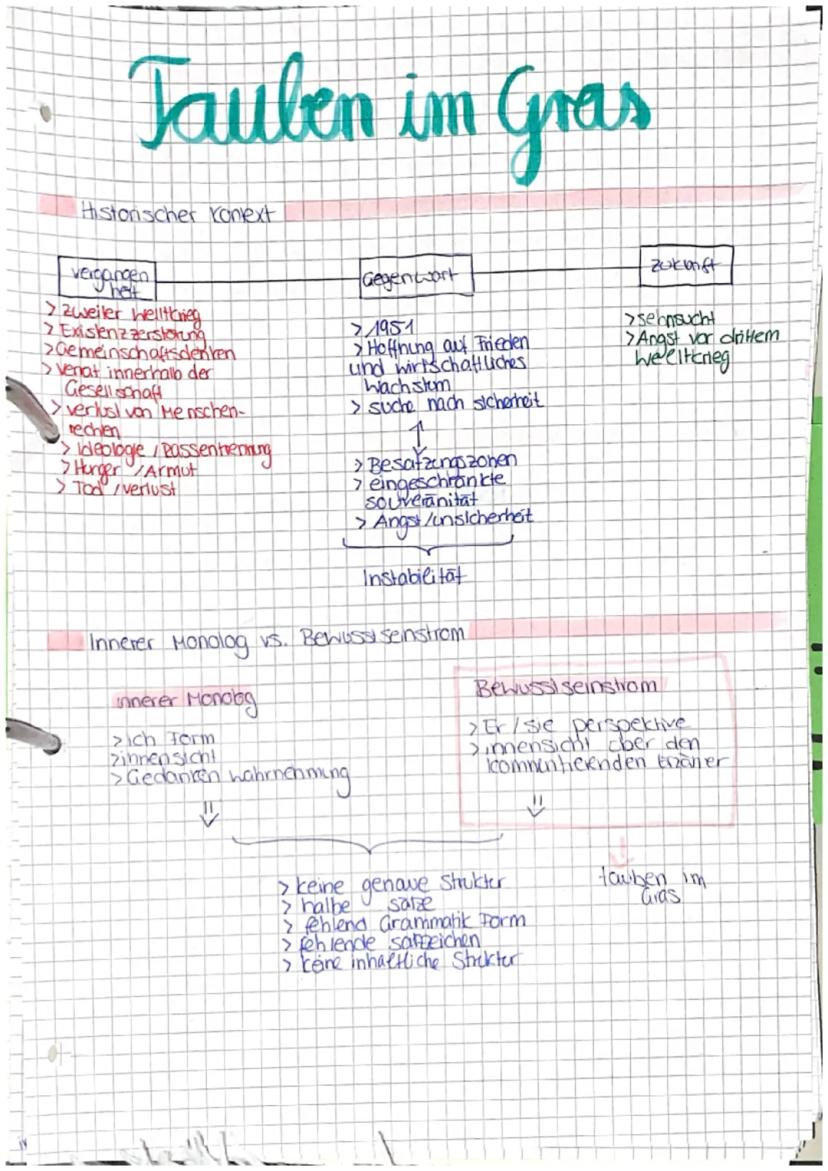 Tauben im Gras
Historischer Kontext
Vergangen
heit
> Zweiter Welltkrieg
> Existenzzerstörung
> Gemeinschaftsdenken
> Verrat innerhalb der
Gesellschaft
> verlust von Menschen-
rechen
> Ideologie / Rassentrennung
> Hunger / Armut
> Tod / verlust
Gegenwart
> 1951
> Hoffnung auf Frieden
und wirtschaftliches
Wachstum
> suche nach sicherheit
> Besatzungszonen
> eingeschränkte
souveränität
> Angst / unsicherheit
Instabilität
Zukunft
> sehnsucht
> Angst vor drittem
Welltkrieg
Innerer Monolog vs. Bewusstsenstrom
innerer Monolog
> ich Form
> innensicht
> Gedanken wahrnehmung
Bewusstseinstrom
> Er / sie perspektive
> innensicht über den
kommentierenden Erzähler
> keine genaue Struktur
> halbe sätze
> fehlend Grammatik Form
> fehlende satzzeichen
> keine inhaltliche Struktur
tauben im
Gras